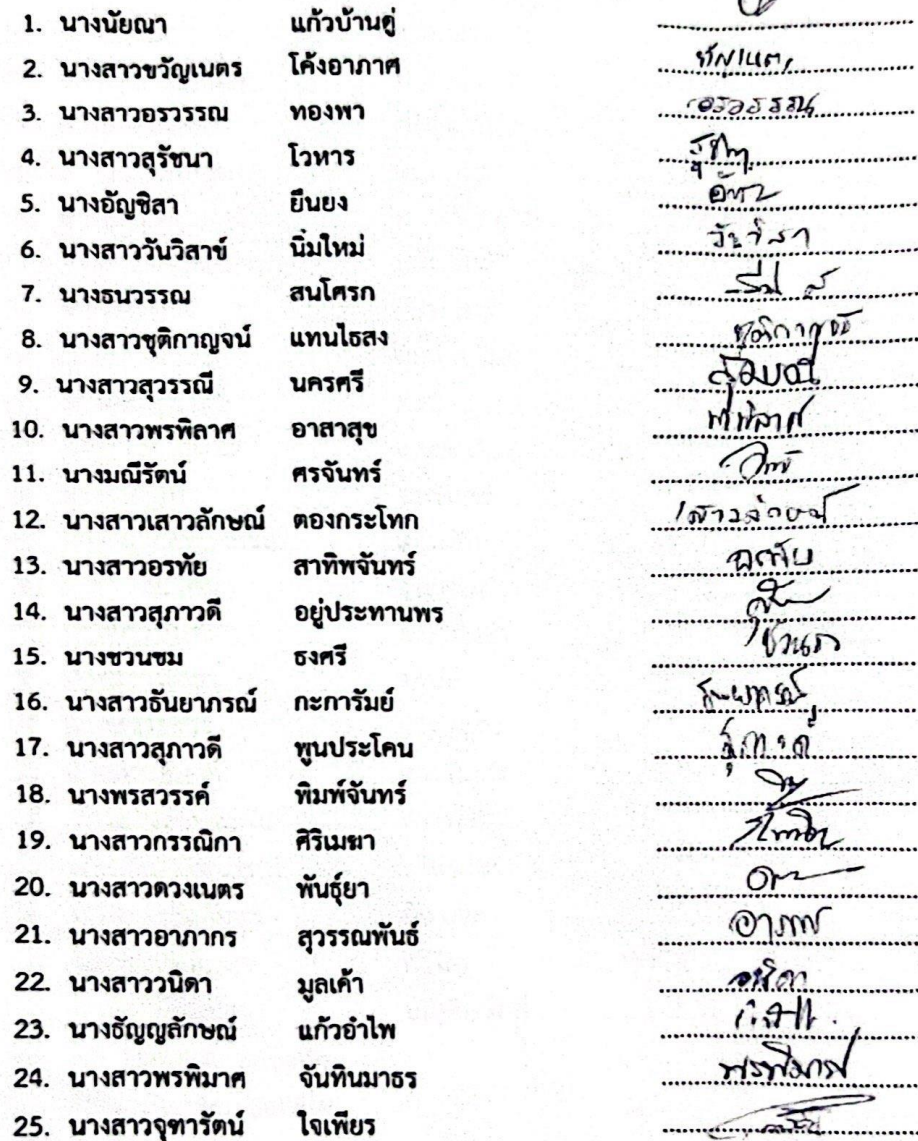 1. นางนัยณา แก้วบ้านดู่
2. นางสาวขวัญเนตร โค้งอาภาศ ขัญเนตร
3. นางสาวอรวรรณ ทองพา อรวรรณ
4. นางสาวสุรัชนา โวหาร
5. นางอัญชิสา ยืนยง
6. นางสาววันวิสาข์ นิ่มใหม่
7. นางธนวรรณ สนโศรก
8. นางสาวชุติกาญจน์ แทนไธสง
9. นางสาวสุวรรณี นครศรี
10. นางสาวพรพิลาศ อาสาสุข
11. นางมณีรัตน์ ศรจันทร์
12. นางสาวเสาวลักษณ์ ตองกระโทก เสาวลักษณ์
13. นางสาวอรทัย สาทิพจันทร์ อรทัย
14. นางสาวสุภาวดี อยู่ประทานพร
15. นางชวนชม ธงศรี
16. นางสาวธันยาภรณ์ กะการัมย์
17. นางสาวสุภาวดี พูนประโคน
18. นางพรสวรรค์ พิมพ์จันทร์
19. นางสาวกรรณิกา ศิริเมฆา
20. นางสาวดวงเนตร พันธุ์ยา
21. นางสาวอาภากร สุวรรณพันธ์
22. นางสาววนิดา มูลเค้า
23. นางธัญญลักษณ์ แก้วอำไพ
24. นางสาวพรพิมาศ จันทินมาธร พรพิมาศ
25. นางสาวจุฑารัตน์ ใจเพียร